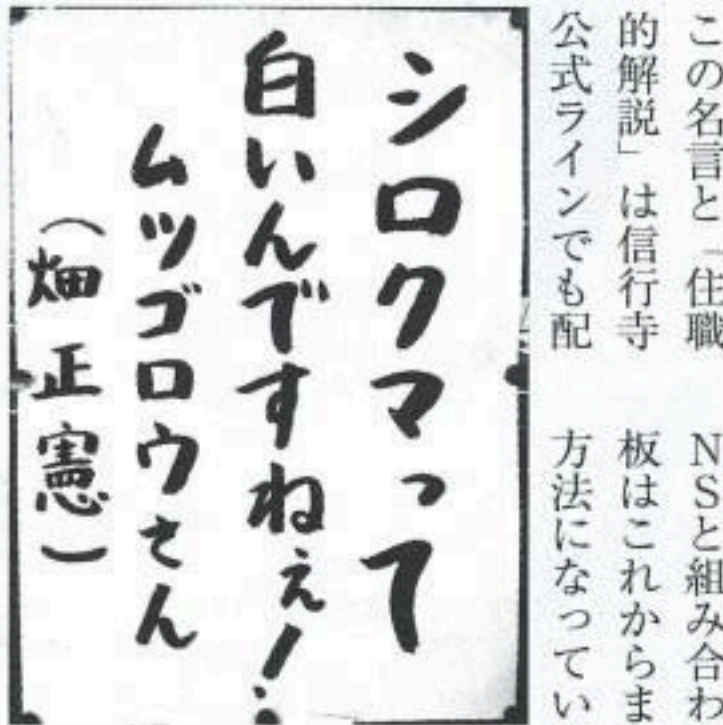 この名言と「住職
的解説」は信行寺
公式ラインでも配
NSと組み合わ
板はこれからま
方法になってい
シロクマって
白いんですねぇ!
ムツゴロウさん
(畑正憲)